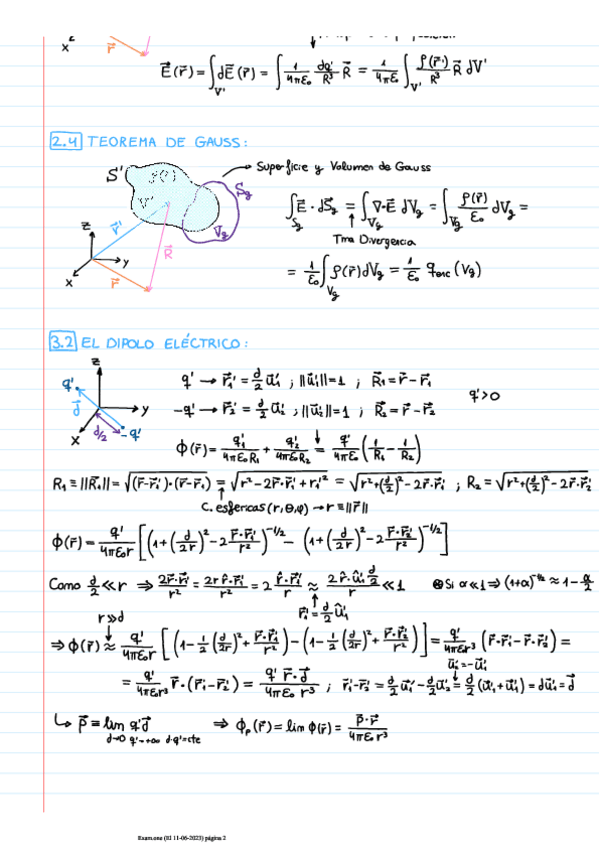 z
x
r⃗
E⃗(r⃗) = ∫_V' dE⃗(r⃗) = ∫ 1/4πε₀ dq'/R³ R⃗ = 1/4πε₀ ∫_V' ρ(r⃗')/R³ R⃗ dV'
2.4 TEOREMA DE GAUSS:
Superficie y Volumen de Gauss
S' ρ(r⃗') V' S_g V_g
z y x r⃗' r⃗ R⃗
∫_Sg E⃗ · dS⃗_g = ∫_Vg ∇·E⃗ dV_g = ∫_Vg ρ(r⃗)/ε₀ dV_g =
Tma Divergencia
= 1/ε₀ ∫_Vg ρ(r⃗) dV_g = 1/ε₀ q_enc (V_g)
3.2 EL DIPOLO ELÉCTRICO:
z y x q' d⃗ d/2 -q'
q' → r⃗₁' = d/2 u⃗₁' ; ||u⃗₁'|| = 1 ; R⃗₁ = r⃗ - r⃗₁
q' > 0
-q' → r⃗₂' = d/2 u⃗₂' ; ||u⃗₂'|| = 1 ; R⃗₂ = r⃗ - r⃗₂
ϕ(r⃗) = q₁'/4πε₀R₁ + q₂'/4πε₀R₂ = q'/4πε₀ (1/R₁ - 1/R₂)
R₁ ≡ ||R⃗₁|| = √(r⃗-r⃗₁')·(r⃗-r⃗₁) = √r² - 2r⃗·r⃗₁' + r₁'² = √r² + (d/2)² - 2r⃗·r⃗₁' ; R₂ = √r² + (d/2)² - 2r⃗·r⃗₂'
C. esfericas (r,θ,φ) → r ≡ ||r⃗||
ϕ(r⃗) = q'/4πε₀r [(1 + (d/2r)² - 2 r⃗·r⃗₁'/r²)^-1/2 - (1 + (d/2r)² - 2 r⃗·r⃗₂'/r²)^-1/2]
Como d/2 ≪ r ⇒ 2r⃗·r⃗₁'/r² = 2r r̂·r⃗₁'/r² = 2 r̂·r⃗₁'/r ≈ 2 r̂·û₁' d/2 /r ≪ 1 ⊛ Si α ≪ 1 ⇒ (1+α)^-1/2 ≈ 1 - α/2
r≫d r⃗₁' = d/2 û₁'
⇒ ϕ(r⃗) ≈ q'/4πε₀r [(1 - 1/2 (d/2r)² + r⃗·r⃗₁'/r²) - (1 - 1/2 (d/2r)² + r⃗·r⃗₂'/r²)] = q'/4πε₀r³ (r⃗·r⃗₁' - r⃗·r⃗₂') =
u⃗₂' = -u⃗₁'
= q'/4πε₀r³ r⃗·(r⃗₁' - r⃗₂') = q' r⃗·d⃗/4πε₀ r³ ; r⃗₁' - r⃗₂' = d/2 u⃗₁' - d/2 u⃗₂' = d/2 (u⃗₁' + u⃗₁') = d u⃗₁' = d⃗
↳ p⃗ ≡ lim q' d⃗ ⇒ ϕ_p(r⃗) = lim ϕ(r⃗) = p⃗·r⃗/4πε₀r³
d→0 q'→+∞ d·q'=cte
Exam.one (El 11-06-2023) página 2